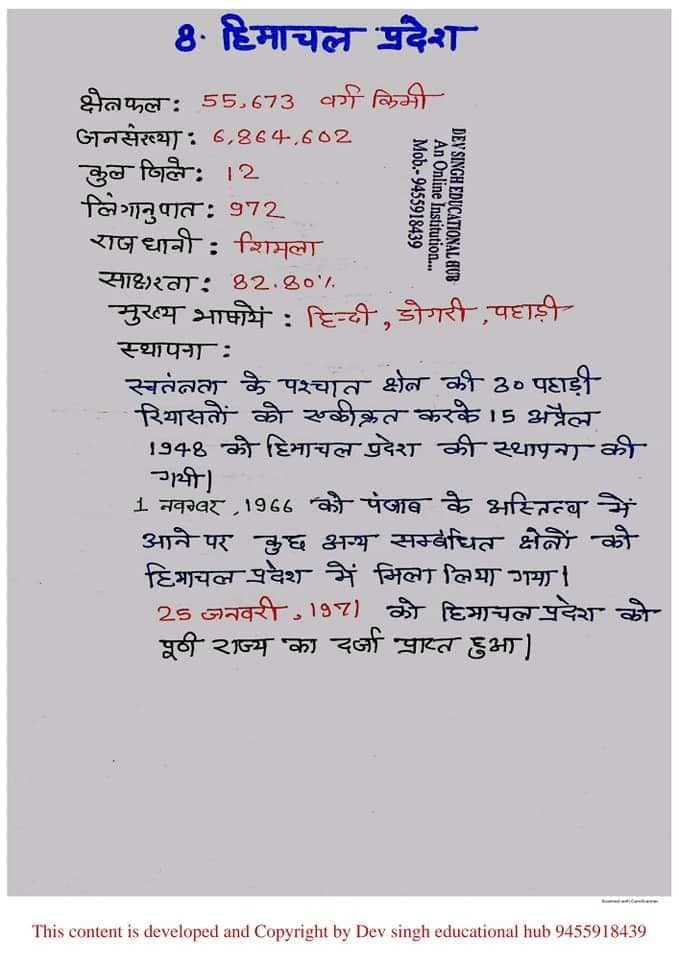 8. हिमाचल प्रदेश
क्षेत्रफल : 55,673 वर्ग किमी
जनसंख्या : 6,864,602
कुल जिले : 12
लिंगानुपात : 972
राजधानी : शिमला
साक्षरता : 82.80%
मुख्य भाषायें : हिन्दी, डोगरी, पहाड़ी
स्थापना :
स्वतंत्रता के पश्चात क्षेत्र की 30 पहाड़ी
रियासतों को एकीकृत करके 15 अप्रैल
1948 को हिमाचल प्रदेश की स्थापना की
गयी।
1 नवम्बर, 1966 को पंजाब के अस्तित्व में
आने पर कुछ अन्य सम्बंधित क्षेत्रों को
हिमाचल प्रदेश में मिला लिया गया।
25 जनवरी, 1971 को हिमाचल प्रदेश को
पूर्ण राज्य का दर्जा प्राप्त हुआ।
DEV SINGH EDUCATIONAL HUB
An Online Institution...
Mob.- 9455918439
Scanned with CamScanner
This content is developed and Copyright by Dev singh educational hub 9455918439